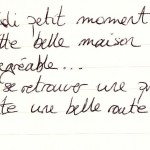 petit moment
belle maison
agréable...
se retrouver une
une belle route